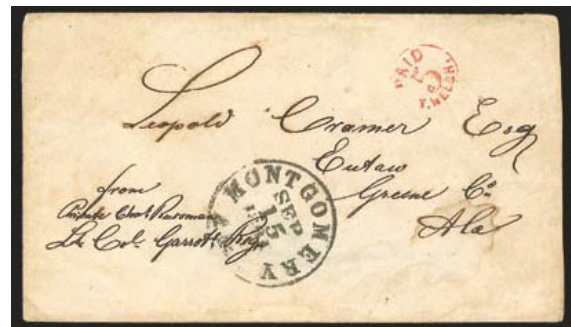 PAID
5
T. WELSH.
Leopold Cramer Esq
Eutaw
Greene Co
Ala
from
Private Chas
Lt. Col. Garrott Regt
MONTGOMERY
SEP
15